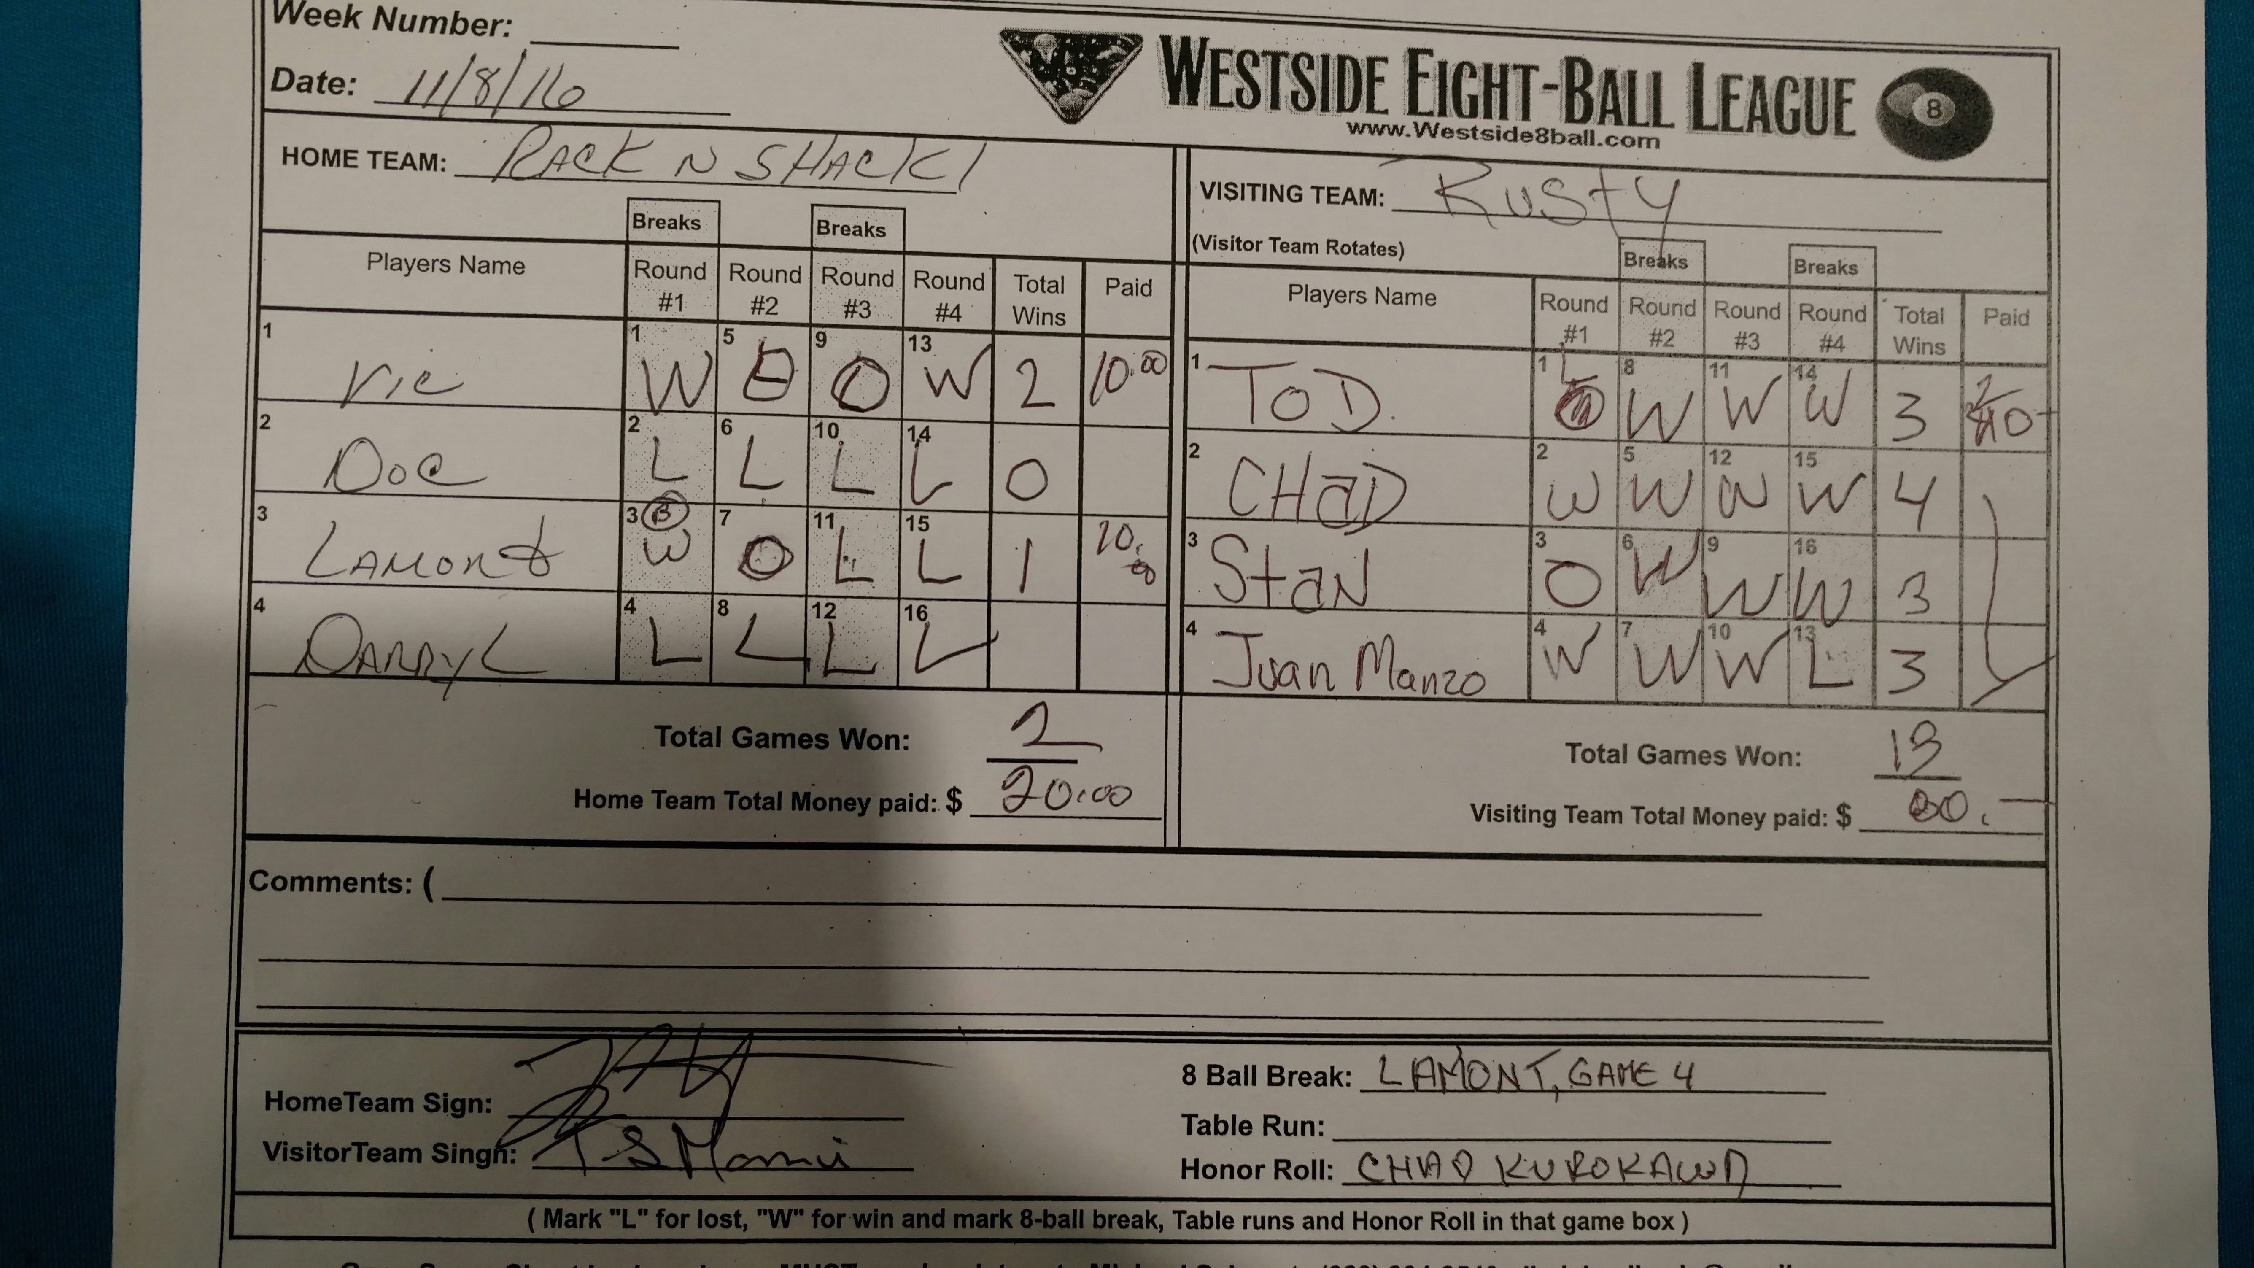 Week Number:
Date: 11/8/16
WESTSIDE EIGHT-BALL LEAGUE
www.Westside8ball.com
8
HOME TEAM: RACK N SHACK
Breaks Breaks
Players Name Round #1 Round #2 Round #3 Round #4 Total Wins Paid
1 Vic 1 W 5 9 O 13 W 2 10.00
2 Doc 2 L 6 L 10 L 14 L 0
3 LAMONT 3 B W 7 O 11 L 15 L 1
4 DARRYL 4 L 8 L 12 L 16 L
Total Games Won: 2
Home Team Total Money paid: $ 20.00
VISITING TEAM: Rusty
(Visitor Team Rotates)
Breaks Breaks
Players Name Round #1 Round #2 Round #3 Round #4 Total Wins Paid
1 TOD. 1 L 8 W 11 W 14 W 3
2 CHaD 2 W 5 W 12 W 15 W 4
3 StaN 3 O 6 W 9 W 16 W 3
4 Juan Manzo 4 W 7 W 10 W 13 L 3
Total Games Won: 13
Visiting Team Total Money paid: $
Comments: (
HomeTeam Sign:
VisitorTeam Singh:
8 Ball Break: LAMONT, GAME 4
Table Run:
Honor Roll: CHAD KUROKAWA
( Mark "L" for lost, "W" for win and mark 8-ball break, Table runs and Honor Roll in that game box )